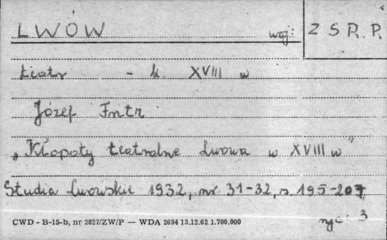 LWÓW woj: Z S R. P.
teatr - k. XVIII w
Józef Fntr
"Kłopoty teatralne Lwowa w XVIII w"
Studia Lwowskie 1932, nr. 31-32, s. 195-207
CWD - B-15-b, nr 2827/ZW/P — WDA 2694 13.12.62 1.700.000
ryc: 3